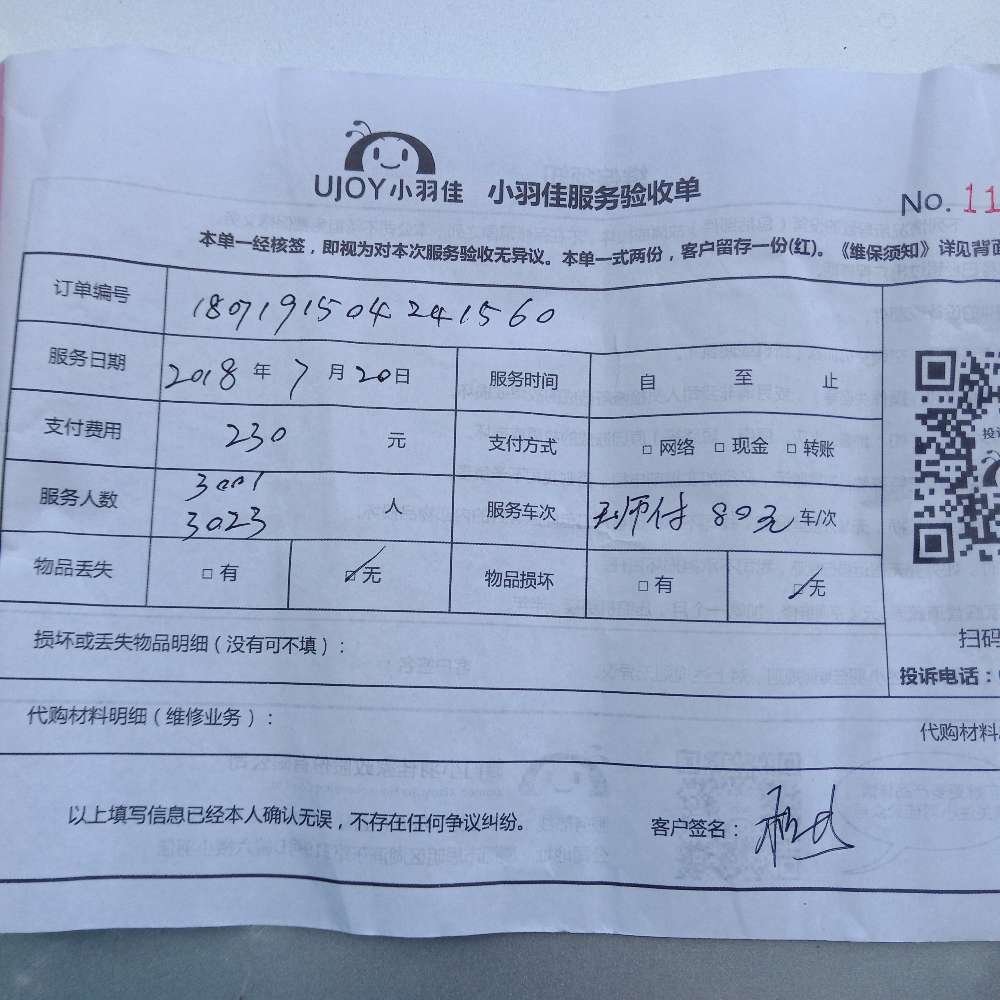 UJOY小羽佳 小羽佳服务验收单
No. 11
本单一经核签，即视为对本次服务验收无异议。本单一式两份，客户留存一份(红)。《维保须知》详见背面
订单编号 180719150424 1560
服务日期 2018 年 7 月 20 日 服务时间 自 至 止
支付费用 230 元 支付方式 □ 网络 □ 现金 □ 转账
服务人数 3001 3023 人 服务车次 付 80元 车/次
物品丢失 □ 有 ☑ 无 物品损坏 □ 有 ☑ 无
损坏或丢失物品明细（没有可不填）：
扫码
投诉电话：
代购材料明细（维修业务）：
代购材料
以上填写信息已经本人确认无误，不存在任何争议纠纷。 客户签名：